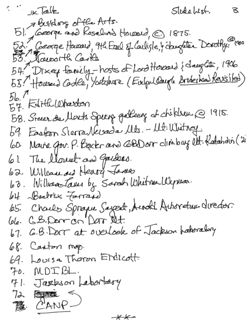 in Talk Slide List 3
→ Building of the Arts.
51. George and Rosalind Howard, @ 1875.
52. George Howard, 9th Earl of Carlisle, & daughter Dorothy @ 1900
53. Naworth Castle
54. Driscy family - hosts of Lord Howard & daughter, 1906
55. Howard Castle, Yorkshire (Evelyn Waugh's Brideshead Revisited)
56.
57. Edith Wharton
58. Sieur de Monts Spring gathering of children @ 1915.
59. Eastern Sierra Nevada Mts. - Mt. Whitney
60. Maine Gov. P. Baxter and GBDorr climbing Mt. Katahdin
61. The Mount and gardens.
62. William and Henry James
63. William James by Sarah Whitman
64. Beatrix Farrand
65. Charles Sprague Sargent, Arnold Arboretum director
66. G.B. Dorr on Dorr Mt.
67. G.B. Dorr at overlook of Jackson Laboratory
68. Canton map
69. Louisa Thoron Endicott
70. MDIBL.
71. Jackson Laboratory
72.
CANP